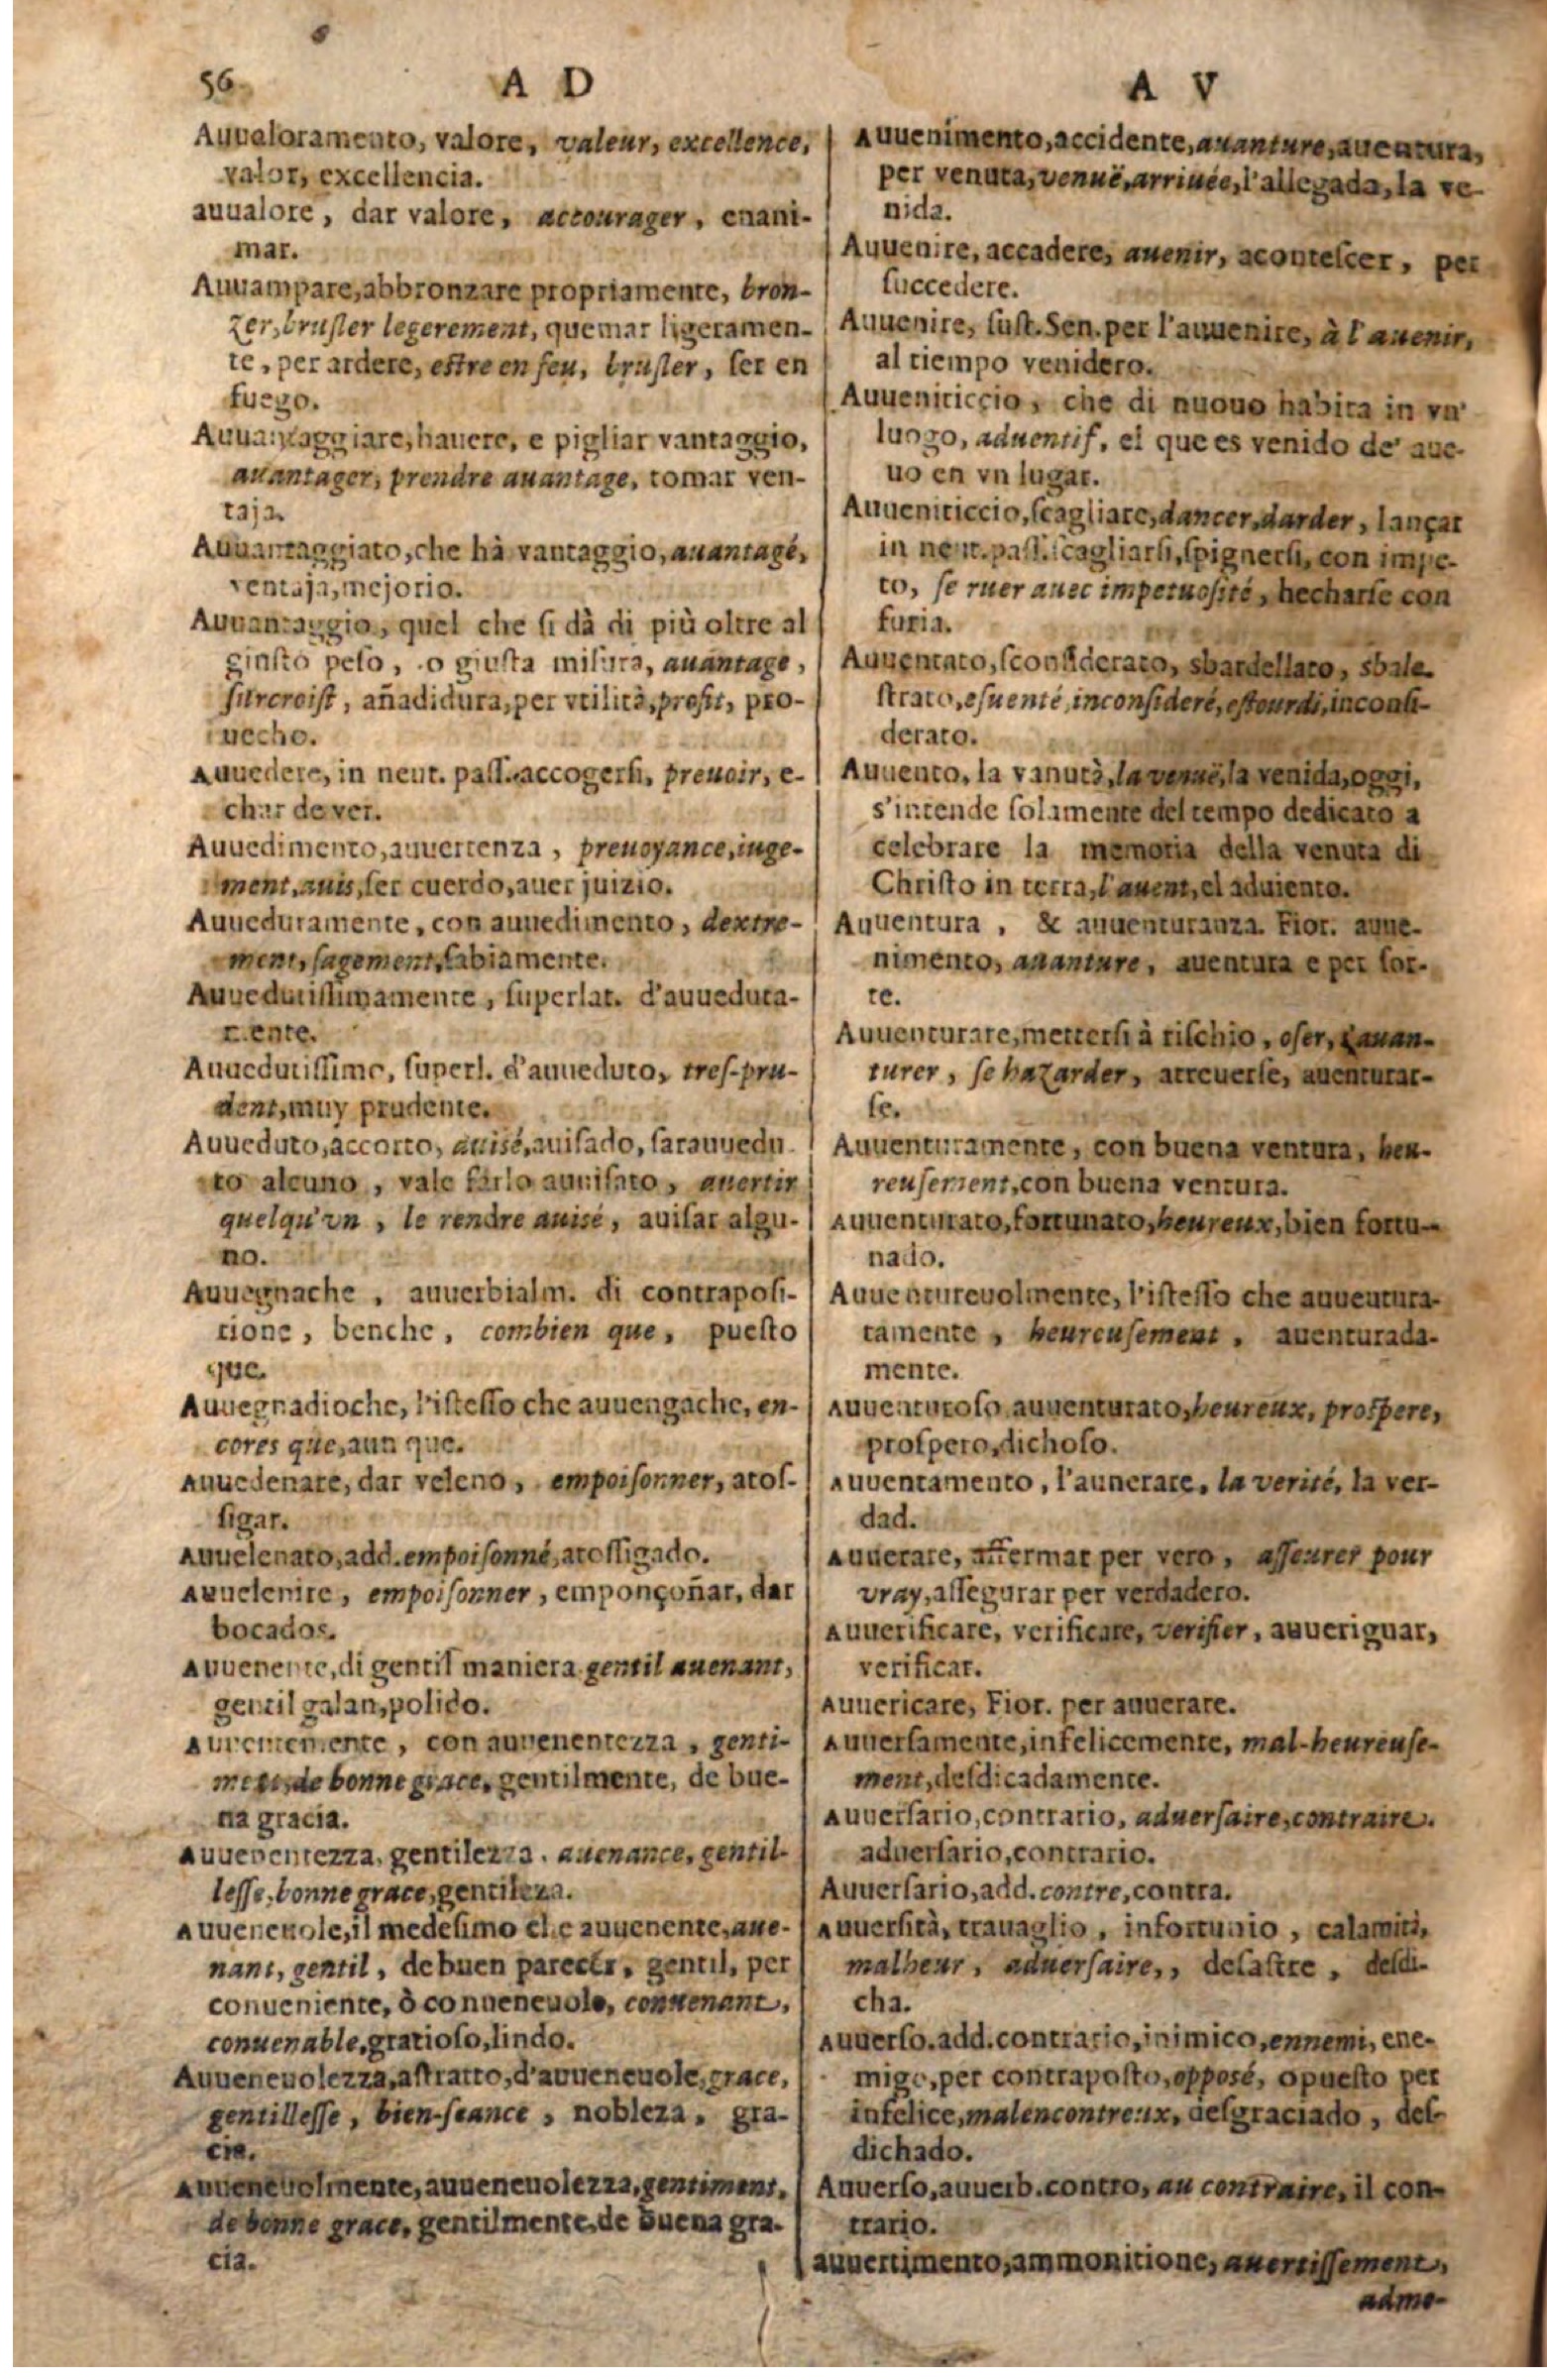 56 A D
Auualoramento, valore, valeur, excellence,
valor, excellencia.
auualore, dar valore, accourager, enani-
mar.
Auuampare, abbronzare propriamente, bron-
zer, bruſler legerement, quemar ligeramen-
te, per ardere, eſtre en feu, bruſler, ſer en
fuego.
Auuantaggiare, hauere, e pigliar vantaggio,
auantager, prendre auantage, tomar ven-
taja.
Auuantaggiato, che hà vantaggio, auantagé,
ventaja, mejorio.
Auuantaggio, quel che ſi dà di più oltre al
giuſto peſo, o giuſta miſura, auantage,
ſurcroiſt, añadidura, per vtilità, profit, pro-
uecho.
Auuedere, in neut. paſſ. accogerſi, preuoir, e-
char de ver.
Auuedimento, auuertenza, preuoyance, iuge-
ment, auis, ſer cuerdo, auer juizio.
Auueduramente, con auuedimento, dextre-
ment, ſagement, ſabiamente.
Auuedutiſſimamente, ſuperlat. d'auueduta-
mente.
Auuedutiſſimo, ſuperl. d'auueduto, tres-pru-
dent, muy prudente.
Auueduto, accorto, auisé, auiſado, farauuedu
to alcuno, vale farlo auuiſato, auertir
quelqu'vn, le rendre auisé, auiſar algu-
no.
Auuegnache, auuerbialm. di contrapoſi-
tione, benche, combien que, pueſto
que.
Auuegnadioche, l'iſteſſo che auuengache, en-
cores que, aun que.
Auuedenare, dar veleno, empoiſonner, atoſ-
ſigar.
Auuelenato, add. empoiſonné, atoſſigado.
Auuelenire, empoiſonner, emponçoñar, dar
bocados.
Auuenente, di gentil maniera gentil auenant,
gentil galan, polido.
Auuenentemente, con auuenentezza, genti-
ment, de bonne grace, gentilmente, de bue-
na gracia.
Auuenentezza, gentilezza, auenance, gentil-
leſſe, bonne grace, gentileza.
Auueneuole, il medeſimo che auuenente, aue-
nant, gentil, de buen parecer, gentil, per
conueniente, ò conueneuole, conuenant,
conuenable, gratioſo, lindo.
Auueneuolezza, aſtratto, d'auueneuole, grace,
gentilleſſe, bien-ſeance, nobleza, gra-
cia.
Auueneuolmente, auueneuolezza, gentiment,
de bonne grace, gentilmente, de buena gra-
cia.
A V
Auuenimento, accidente, auanture, auentura,
per venuta, venuë, arriuée, l'allegada, la ve-
nida.
Auuenire, accadere, auenir, aconteſcer, per
ſuccedere.
Auuenire, ſuſt. Sen. per l'auuenire, à l'auenir,
al tiempo venidero.
Auueniticcio, che di nuouo habita in vn'
luogo, aduentif, el que es venido de' nue-
uo en vn lugar.
Auueniticcio, ſcagliare, dancer, darder, lançar
in neut. paſſ. ſcagliarſi, ſpignerſi, con impe-
to, ſe ruer auec impetuoſité, hecharſe con
furia.
Auuentato, ſconſiderato, sbardellato, sbale-
ſtrato, eſuenté, inconſideré, eſtourdi, inconſi-
derato.
Auuento, la vanutà, la venuë, la venida, oggi,
s'intende ſolamente del tempo dedicato a
celebrare la memoria della venuta di
Chriſto in terra, l'auent, el aduiento.
Auuentura, & auuenturanza. Fior. auue-
nimento, auanture, auentura e per ſor-
te.
Auuenturare, metterſi à riſchio, oſer, s'auan-
turer, ſe hazarder, atreuerſe, auenturar-
ſe.
Auuenturamente, con buena ventura, heu-
reuſement, con buena ventura.
Auuenturato, fortunato, heureux, bien fortu-
nado.
Auuentureuolmente, l'iſteſſo che auuentura-
tamente, heureuſement, auenturada-
mente.
Auuenturoſo auuenturato, heureux, proſpere,
proſpero, dichoſo.
Auuentamento, l'auuerare, la verité, la ver-
dad.
Auuerare, affermar per vero, aſſeurer pour
vray, aſſegurar per verdadero.
Auuerificare, verificare, verifier, auueriguar,
verificar.
Auuericare, Fior. per auuerare.
Auuerſamente, infelicemente, mal-heureuſe-
ment, deſdicadamente.
Auuerſario, contrario, aduerſaire, contraire.
aduerſario, contrario.
Auuerſario, add. contre, contra.
Auuerſità, trauaglio, infortunio, calamità,
malheur, aduerſaire,, deſaſtre, deſdi-
cha.
Auuerſo. add. contrario, inimico, ennemi, ene-
migo, per contrapoſto, opposé, opueſto per
infelice, malencontreux, deſgraciado, deſ-
dichado.
Auuerſo, auuerb. contro, au contraire, il con-
trario.
auuertimento, ammonitione, auertiſſement,
admo-